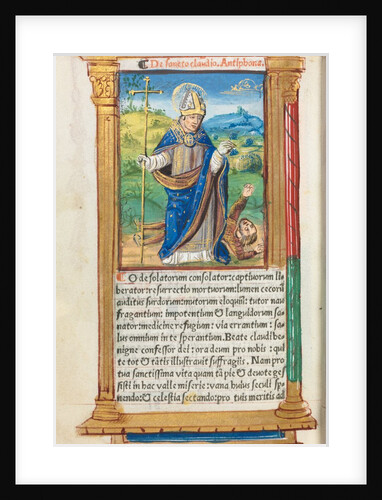 De sancto claudio. Antiphona.
O desolatorum consolator: captivorum li⸗
berator: resurrectio mortuorum: lumen cecorū
auditus surdorum: mutorum eloquiū: tutor nau
fragantium: impotentium & languidorum sa⸗
nator: medicine refugium: via errantium: sa⸗
lus omnium in te sperantium. Beate claudi be⸗
nigne confessor dei: ora deum pro nobis: qui
te tot & tātis illustravit suffragiis. Nam pro
tua sanctissima vita quam tā pie & devote ges⸗
sisti in hac valle miserie: vana huius seculi sper
nendo: & celestia sectando: pro tuis meritis ad